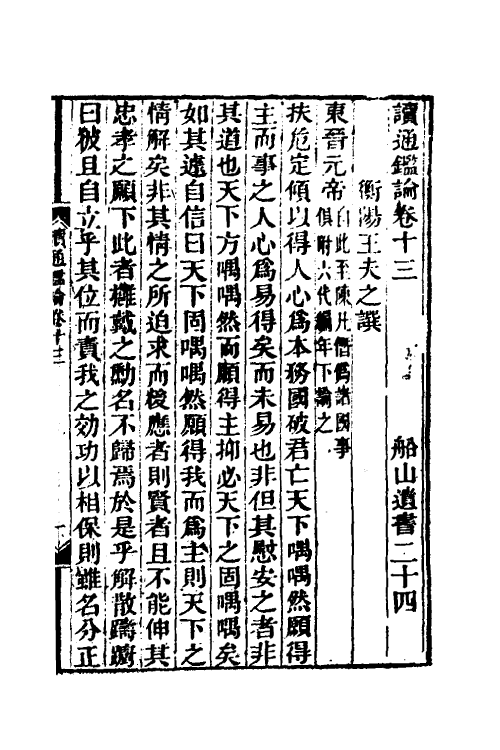 讀通鑑論卷十三 船山遺書二十四
衡陽王夫之譔
東晉元帝 自此至陳凡僭僞諸國事
俱附六代編年下論之
扶危定傾以得人心爲本務國破君亡天下喁喁然願得
主而事之人心爲易得矣而未易也非但其慰安之者非
其道也天下方喁喁然而願得主抑必天下之固喁喁矣
如其遽自信曰天下固喁喁然願得我而爲主則天下之
情解矣非其情之所迫求而後應者則賢者且不能伸其
忠孝之願下此者權戴之勳名不歸焉於是乎解散躊躇
曰彼且自立乎其位而責我之効功以相保則雖名分正
讀通鑑論卷十三 一